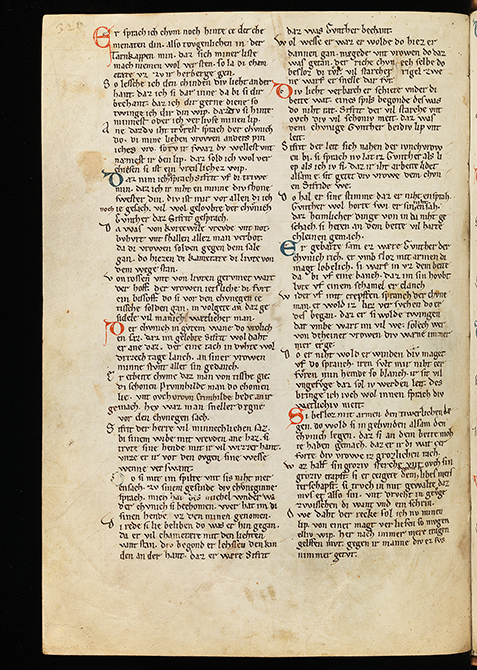 320
Er sprach ich chvm noch hinte ce der che
menaten din. also tovgenlichen in der
tarnkappen min. daz sich miner liste
mach niemen wol versten. so la di cham
erære zv zvir herberge gen.
So lesche ich den chinden div lieht an der
hant. daz ich si dar inne da bi si dir
bechant. daz ich dir gerne diene so
twinge ich dir din wip. daz dv si hinte
minnest oder ich verlivse minen lip.
Ane daz dv iht trvtest sprach der chvnich
do. di mine lieben vrowen anders bin
iches vro. so tv ir swaz dv wellest vnt
næmest ir den lip. daz sold ich wol ver
chiesen si ist ein vreislichez wip.
Daz nim ich sprach Sifrit vf di triwe
min. daz ich ir niht en minne div schone
swester din. div ist mir vor allen di ich
noch ie gesach. vil wol gelovbet der chvnich
Gvnther daz Sifrit gesprach.
Da was von kvrcewile vrevde vnt not.
bvhvrt vnt schallen allez man verbot.
da di vrowen solden gegen dem sale
gan. do hiezen di kamerære di livte von
dem wege stan.
Von rossen vnt von livten gervmet wart
der hof. der vrowen iesliche di fvrt
ein bisschof. do si vor den chvnigen ce
tissche solden gan. in volgete an daz ge
sidele vil manich wætlicher man.
Der chvnich in gvtem wane do vrolich
en saz. daz im gelobte Sifrit wol daht
er ane daz. der eine tach in dvhte wol
drizzech tage lanch. an siner vrowen
minne stvnt aller sin gedanch.
Er erbeite chvme daz man von tissche gie.
di schonen Prvnhilde man do chomen
lie. vnt ovch vron Criemhilde bede an ir
gemach. hey waz man sneller degne
vor den chvnegen sach.
Sifrit der herre vil minnechlichen saz.
bi sinem wibe mit vrevden ane haz. si
trvte sine hende mit ir vil wizzer hant.
vnze er ir vor den ovgen sine wesse
wenne verswant.
Do si mit im spilte vnt si sin niht mer
ensach. zv sinem gesinde div chvniginne
sprach. mich hat des michel wnder wa
der chvnich si bechomen. wer hat im di
sinen hende vz den minen genomen.
Di rede si lie beliben do was er hin gegan.
da er vil chamerære mit den liehten
vant stan. div begond er leschen den kin
den an der hant. daz er wære Sifrit
daz was Gvnther bechant.
Wol wesse er waz er wolde do hiez er
dannen gan. mægede vnt vrowen do daz
was getan. der riche chvnich selbe do
besloz di tvr. vil starcher rigel zwe
ne warf er snelle dar fvr.
Div lieht verbarch er schiere vnder di
bette wat. eines spils begonde des was
do niht rat. Sifrit der vil starche vnt
ovch div vil schoniv meit. daz was
dem chvnige Gvnther beidiv lip vnt
leit.
Sifrit der leit sich nahen der ivnchvrow
en bi. si sprach nv lat ir Gvnther als li
ep als iv si. daz ir iht arbeite lidet
alsam e. sit getet div vrowe dem chvn
en Sifride we.
Do hal er sine stimme daz er niht ensprach.
Gvnther wol horte swi er sin niht ensah.
daz heimlicher dinge von in da niht ge
schach. si heten an dem bette vil harte
chleinen gemach.
Er gebarte sam ez wære Gvnther der
chvnich rich. er vmb sloz mit armen di
magt lobelich. si warf in vz dem bette
da bi vf eine banch. daz im sin hovbt
lvte vf einem schamel er clanch
Wider vf mit creften spranch der chvne
man. er wold iz baz versvchen do er
des began. daz er si wolde twingen
dar vmbe wart im vil we. solech wer
von deheiner vrowen div wæne immer
mer erge.
Do er niht wold erwinden div maget
vf do spranch. iren svlt mir niht zer
fvren min hemde so blanch. ir sit vil
vngefvge daz sol iv werden leit. des
bringe ich ivch wol innen sprach div
wætlichiv meit.
Si besloz mit armen den tiwerlichen de
gen. do wold si in gebvnden alsam den
chvnich legen. daz si an dem bette moh
te haben gemach. daz er ir di wat zer
fvrte div vrowe iz grozlichen rach.
Waz half sin groziv sterche vnt ovch sin
groziv craft. si erceigete dem degne ir
meisterschaft. si trvch in mit gewalte daz
mvs et also sin. vnt drvht in vngefvge
zwisschen di want vnd ein schrin.
Owe daht der recke sol ich nv minen
lip. von einer magt verliesen so mvgen
elliv wip. her nach immer mere tragen
gelfen mvt. gegen ir manne div ez svs
nimmer getvt.